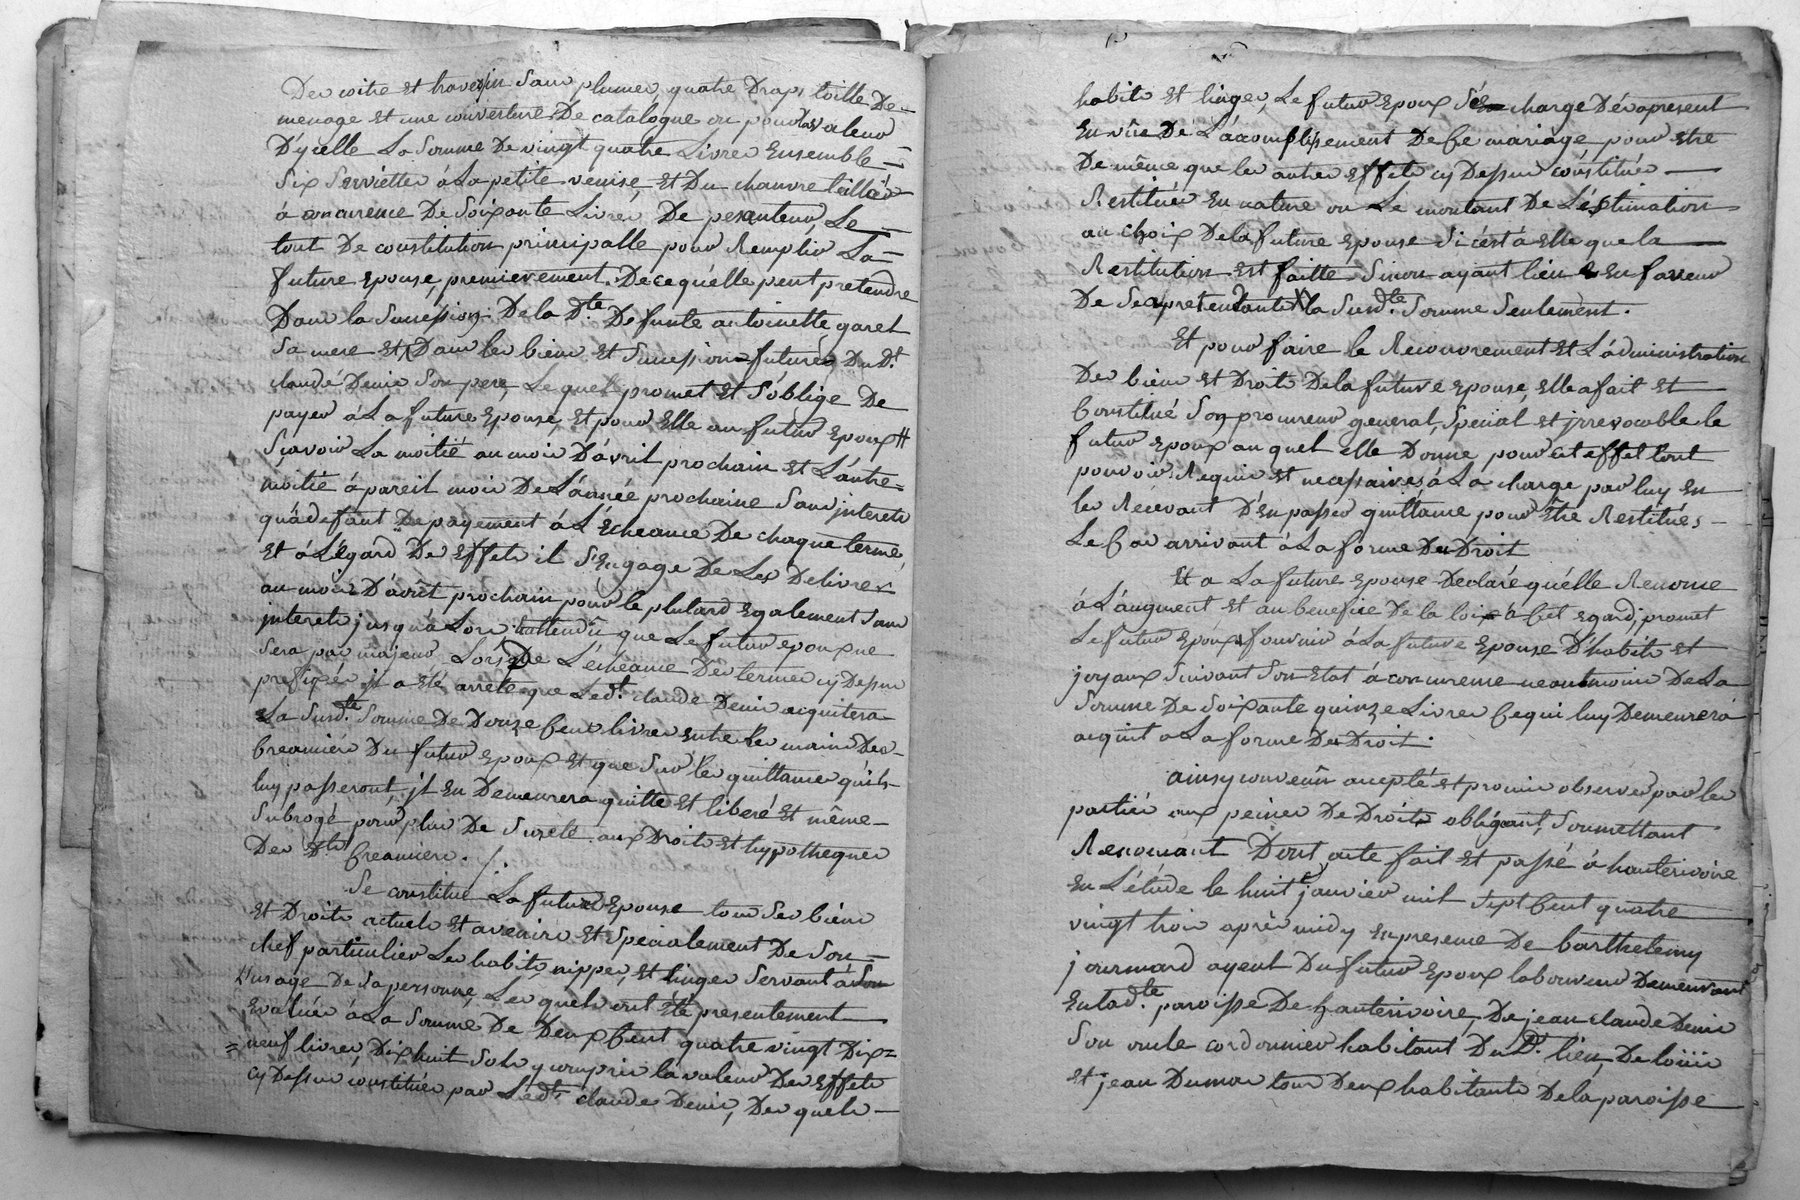 Des coitre et traversin sans plumes, quatre Draps toille De
menage et une couverture De catalogne ou pour les valeur
D'ycelle La Somme De vingt quatre Livres Ensemble
Six Serviettes à La petite venise, Et Du chanvre teillée
à concurrence De Soixante Livres, De pesanteur, Le
tout De constitution principalle pour Remplir La
future Epouse, premierement. De ce qu'elle peut pretendre
Dans la Succession De la Dte Defunte antoinette garel
Sa mere et Dans les biens Et Succession future Du Dt
claude Denis Son pere, Lequel promet Et S'oblige De
payer à La future Epouse, Et pour Elle au futur Epoux #
Sçavoir La moitié au mois D'avril prochain Et L'autre
moitié à pareil mois De L'année prochaine Sans jnterets
qu'à defaut De payement à L'Echeance De chaque terme
Et à L'égard Des Effets il S'Engage De Les Delivrer
au mois D'avril prochain pour le plutard Egalement Sans
jnterets jusqu'à Lors, attendû que Le futur epoux ne
Sera pas majeur Lorsque L'écheance Des termes cy Dessus
prefigés jl a été arreté que Ledt claude Denis acquitera
La Susdte Somme De Douze Cent livres entre les mains Des
Creanciers Du futur epoux Et que Sur les quittances qu'ils
luy passeront, jl En Demeurera quitte Et liberé Et même
Subrogé pour plus De Sureté aux Droits Et hypotheques
Des Dts Creanciers. /.
Se constitue La future Epouse tous Ses biens
Et Droits actuels Et avenirs Et Specialement De Son
chef particulier Les habits, nippes, Et linges Servant à Son
L'usage De Sa personne, Lesquels ont Eté presentement
Evalués à La Somme De Deux Cent quatre vingt Dix
neuf livres, Dix huit Sols y compris la valeur Des Effets
cy Dessus constitués par Ledt claude Denis, Desquels
habits Et linges, Le futur Epoux S'En charge Dés apresent
En vûe De L'accomplissement De Ce mariage, pour Etre
De même que les autres Effets cy Dessus constitués
Restitués En nature ou Le montant De L'éstimation
au choix De la future epouse Si c'est à Elle que la
Restitution Est faitte Sinon ayant lieu En faveur
De Ses pretendants la Susdte Somme Seulement.
Et pour faire le Recouvrement Et L'administration
Des biens Et Droits De la future Epouse, Elle a fait Et
Constitué Son procureur general, Special et jrrevocable le
futur epoux auquel elle Donne pour cet effet tout
pouvoir Requis Et necessaires à La charge par luy En
les Recevant D'En passer quittance pour Être Restitués
Le Cas arrivant à La forme Du Droit
Et a La future Epouse Declaré qu'elle Renonce
à L'augment Et au benefice De la loix à Cet Egard, promet
Le futur Epoux fournir à La future Epouse D'habits et
joyaux Suivant Son Etat à concurrence neantmoins De La
Somme De Soixante quinze Livres Ce qui luy Demeurera
acquit à La forme Du Droit.
ainsy convenû accepté et promis observer par les
parties aux peines De Droits obligeant, Soumettant
Renonçant Dont acte fait et passé à hauterivoire
En L'étude le huit janvier mil Sept Cent quatre
vingt trois après midy En presence De barthelemy
journard ayeul Du futur Epoux laboureur Demeurant
En lade paroisse De hauterivoire, De jean claude Denis
Son oncle cordonnier habitant Du Dt lieu, De loüis
et jean Dumas tous Deux habitants De la paroisse